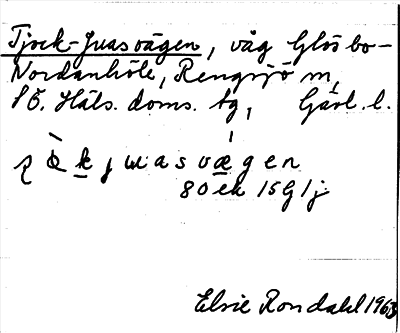 Tjock-Juasvägen, väg Glösbo-
Nordanhöle, Rengsjö m,
SÖ. Häls. doms. tg, Gävl. l.
k j uasvægen
80 ek 15G 1j
Elsie Rondahl 1963